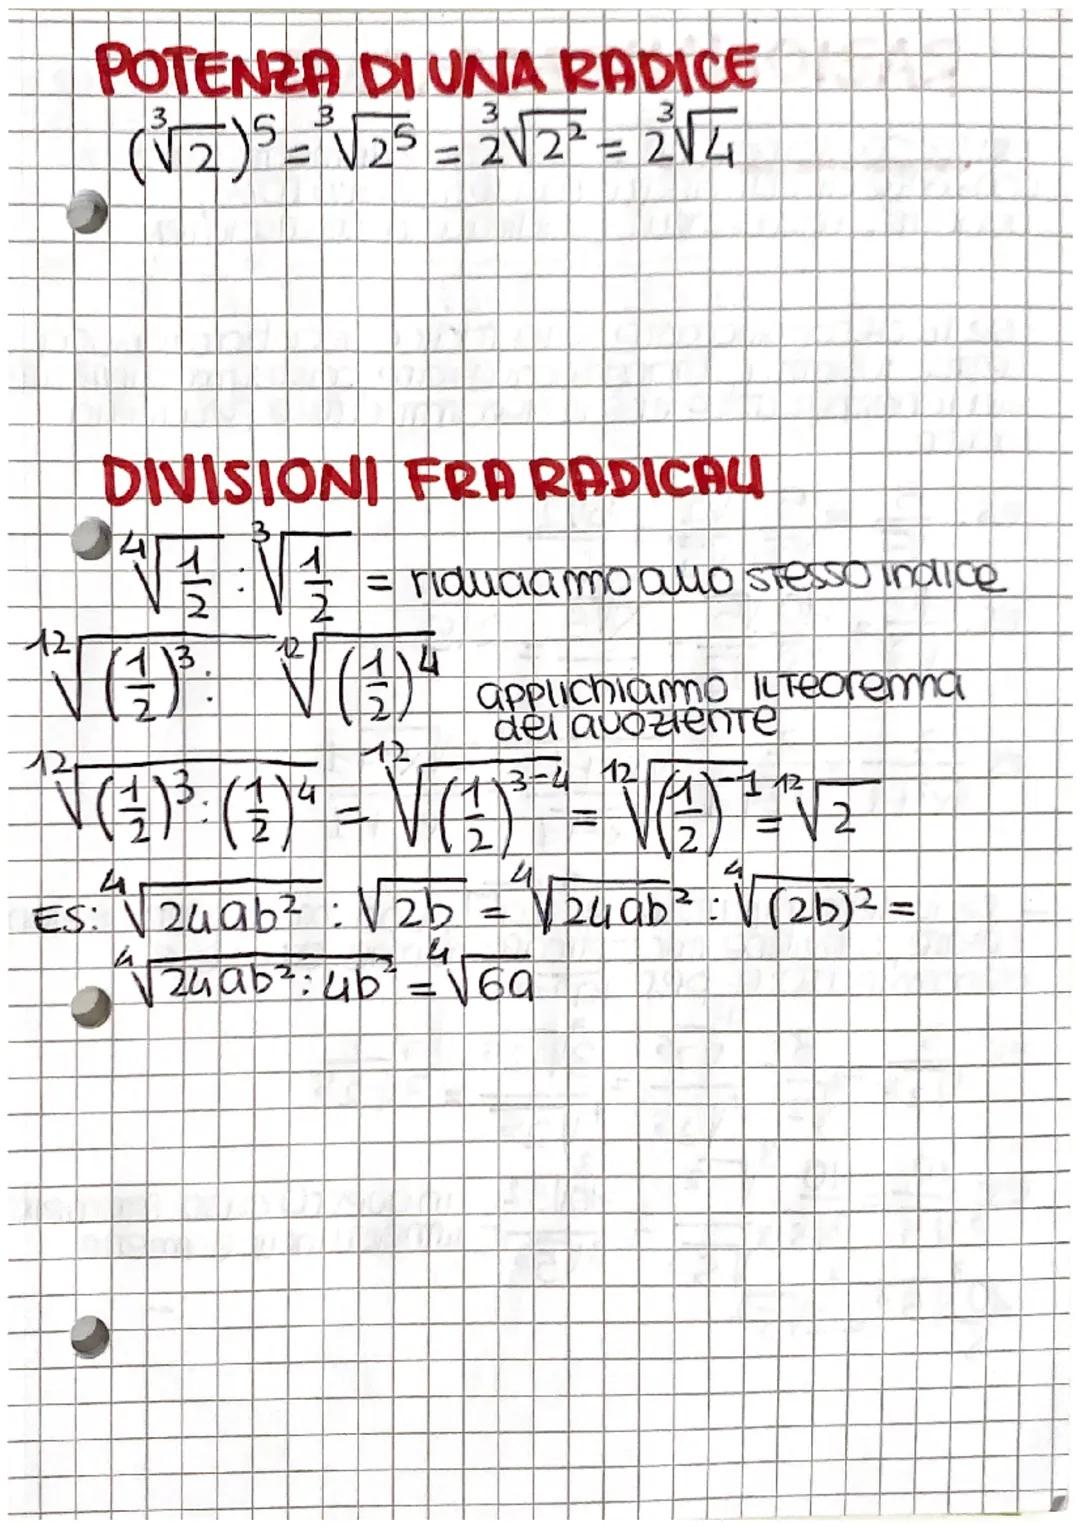 POTENZA DI UNA RADICE
(³√2)⁵ = ³√2⁵ = 2 ³√2² = 2 ³√4
DIVISIONI FRA RADICALI
⁴√(1/2) : ³√(1/2) = riduciamo allo stesso indice
¹²√(1/2)³ : ¹²√(1/2)⁴ applichiamo il teorema
del quoziente
¹²√(1/2)³:(1/2)⁴ = ¹²√(1/2)³⁻⁴ = ¹²√(1/2)⁻¹ = ¹²√2
ES: ⁴√24ab² : √2b = ⁴√24ab² : ⁴√(2b)² =
⁴√24ab²:4b² = ⁴√6a